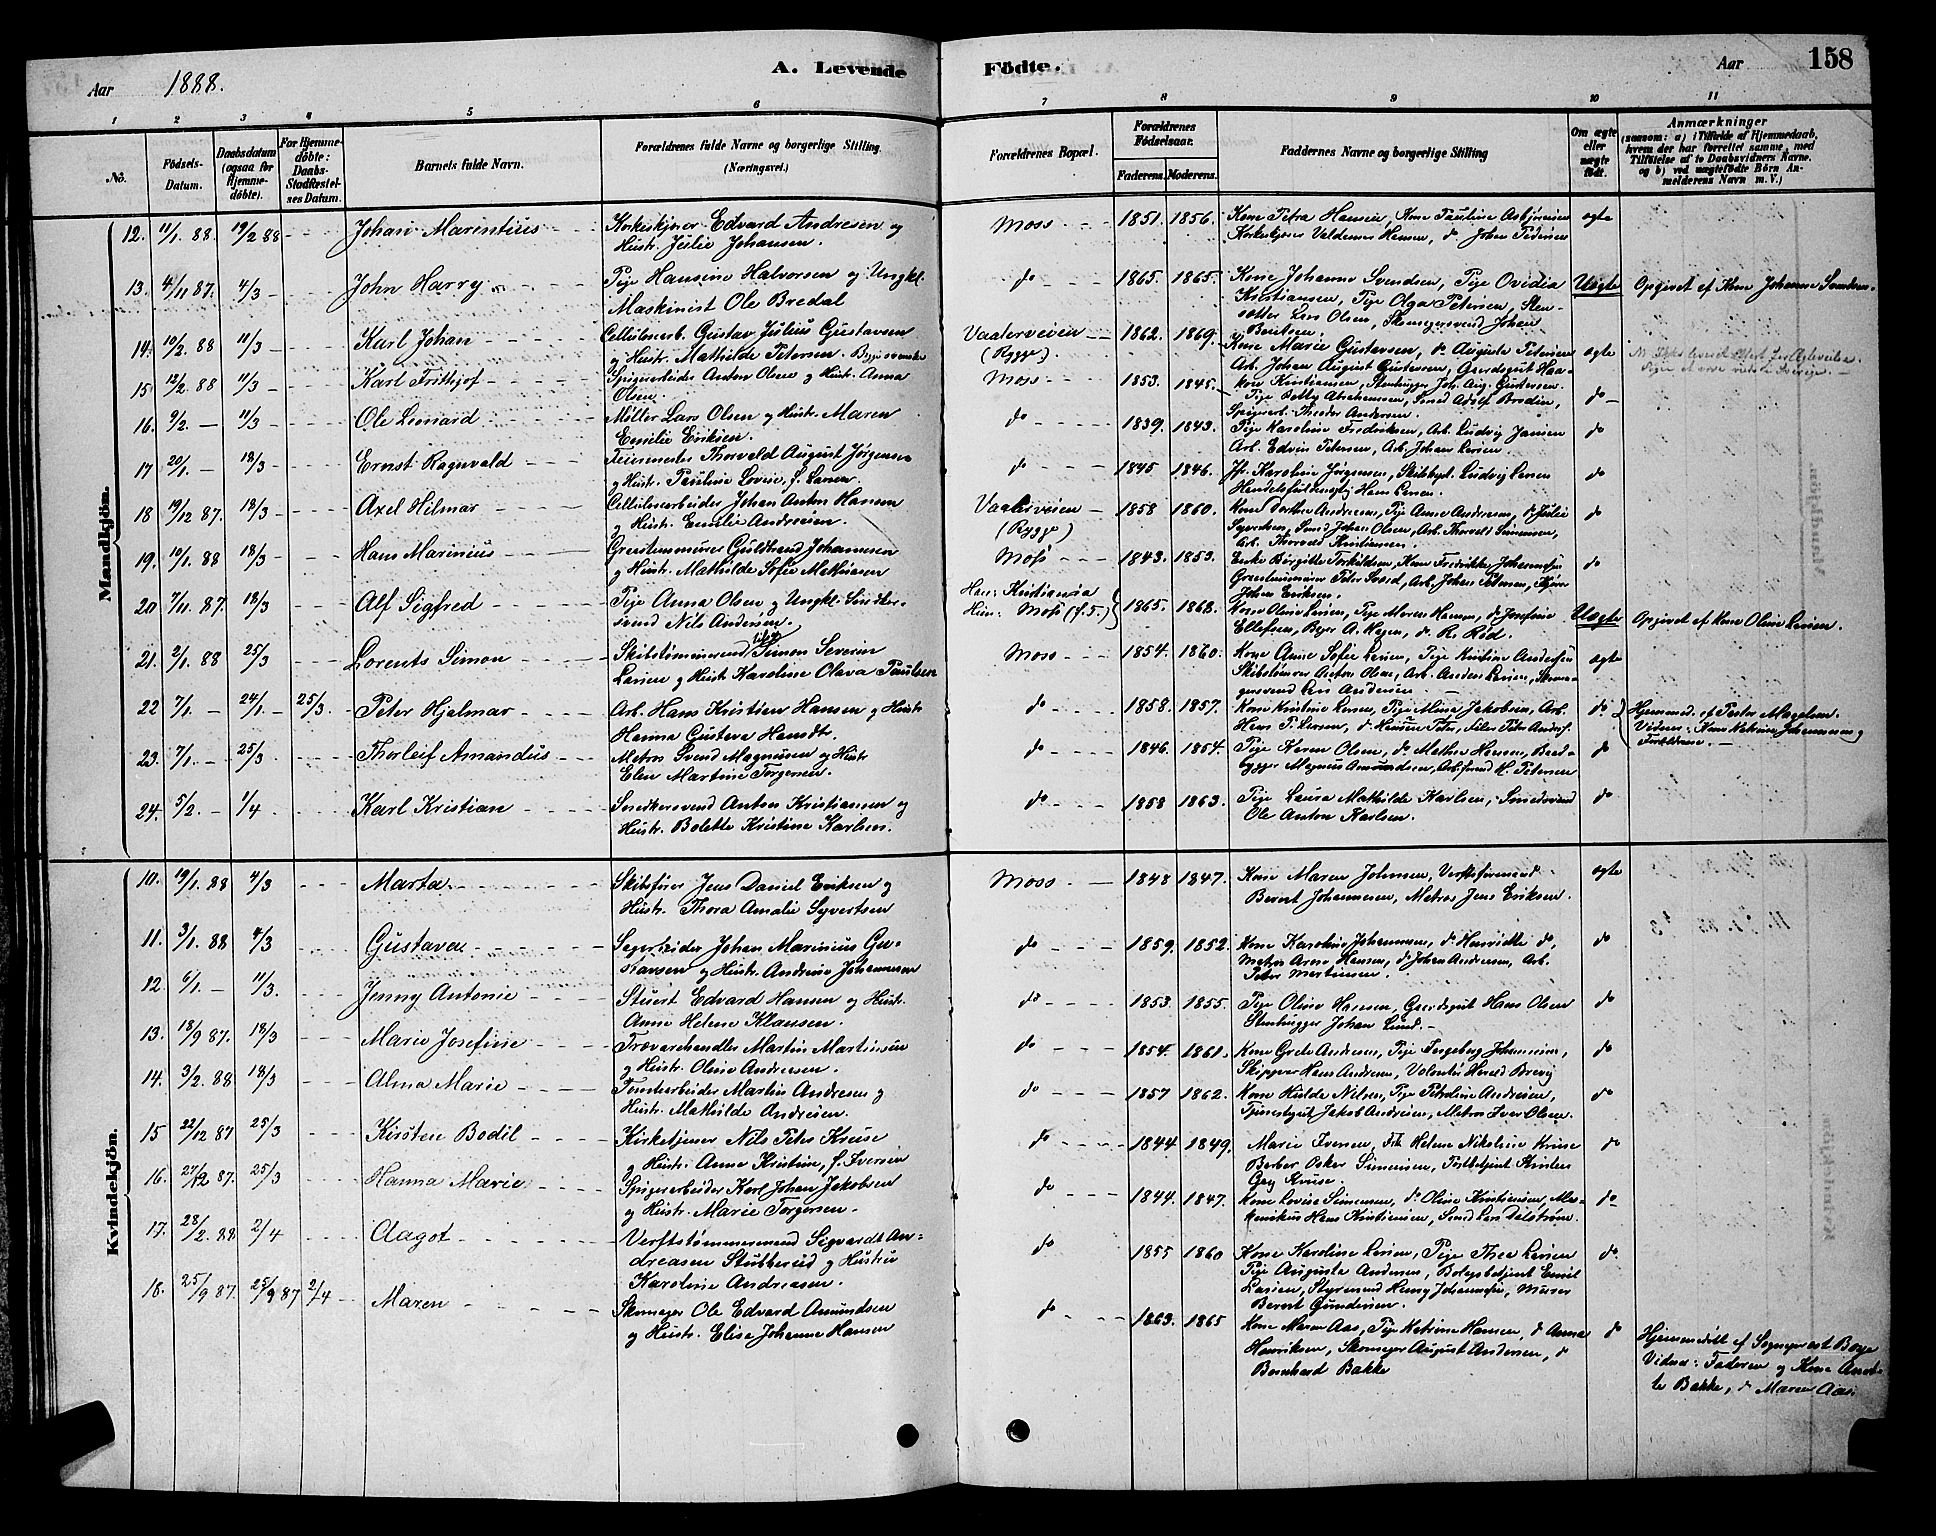 Aar 1888.
A. Levende Födte.
Aar 158
1 2 3 4 5 6 7 8 9 10 11
No.
Födsels-Datum.
Daabsdatum (ogsaa for Hjemmedöbte).
For Hjemmedöbte: Daabs-Stadfæstelses Datum.
Barnets fulde Navn.
Forældrenes fulde Navne og borgerlige Stilling (Næringsvei).
Forældrenes Bopæl.
Forældrenes Födselsaar.
Faderens. Moderens.
Faddernes Navne og borgerlige Stilling
Om ægte eller uægte födt.
Anmærkninger
(saasom: a) i Tilfælde af Hjemmedaab, hvem der har forrettet samme, med Tilföielse af to Daabsvidners Navne. og b) ved uægtefödte Börn Anmelderens Navn m. V.)
Mandkjön.
12. 11/1. 88 19/2 88 Johan Marintius Korkeskjærer Edvard Andresen og Moss 1851. 1856. Kone Petra Hansen, Kone Pauline Asbjørnsen ægte
Hustr. Julie Johansen. Korkeskjærer Valdemar Hansen, do Johan Pedersen
13. 4/11 87. 4/3 John Harry Pige Hansine Halvorsen og Ungkl. do 1865. 1865. Kone Johanne Svendsen, Pige Ovidia Uægte Opgivet af Kone Johanne Svendsen.
Maskinist Ole Bredal Kristiansen, Pige Olga Petersen, Sten-
sætter Lars Olsen, Skomagersvend Johan
14. 10/2. 88 11/3 Karl Johan Cellulosearb. Gustav Julius Gustavsen Vaalerveien (Rygge). 1862. 1869. Kone Marie Gustavsen, do Augusta Petersen ægte
og Hustr. Mathilde Petersen. Arb. Johan August Gustavsen, Gaardsgut Haa-
15 12/2 88 11/3 Karl Frithjof Spigerarbeider Anton Olsen og Hustr. Anna Moss 1853. 1845. kon Kristiansen, Stenhugger Joh. Aug. Gustavsen. do
Olsen. Pige Betty Abrahamsen, Smed Adolf Brodin,
Spigerarb. Theodor Andersen.
16. 9/2 11/3 Ole Leonard Möller Lars Olsen og Hustr. Maren do 1839. 1843. Pige Karoline Fredriksen, Arb. Ludvig Jansen do
Emilie Eriksen. Arb. Edvin Petersen, Arb. Johan Larsen
17 20/1. 18/3 Ernst Ragnvald Feiermester Thorvald August Jörgensen do 1845 1846. Fr. Karoline Jörgensen, Skibskpt. Ludvig Larsen do
og Hustr. Pauline Lovise, f. Larsen Handelsfuldmægtig Hans Larsen.
18 19/12 87. 18/3 Axel Hilmar Cellulosearbeider Johan Anton Hansen Vaalerveien (Rygge) 1858 1860. Kone Dorthea Andresen, Pige Anna Andresen, do Julie do
og Hustr. Emilie Andresen. Syvertsen, Smed Johan Olsen, Arb. Thorvald Simensen,
Arb. Thorvald Kristiansen.
19. 10/1. 88 18/3 Hans Marinius Graastensmurer Guldbrand Johannesen Moss 1843. 1853. Enke Birgitte Torkildsen, Kone Fredrikke Johannesen do
og Hustr. Mathilde Sofie Mathisen Graastensmurer Peter Svard, Arb. Johan Petersen,
Johan Eriksen.
20 7/11. 87. 18/3 Alf Sigfred Pige Anna Olsen og Ungkl. Snedker- Han: Kristiania 1865. 1868. Kone Oline Larsen, Pige Maren Hansen, do Josefine Uægte Opgivet af Kone Oline Larsen.
svend Nils Andersen. Hun: Moss (f. S.) Ellefsen, A. Hagen, do R. Röd.
21. 2/1. 88 25/3 Lorents Simon Skibstömmermand Simon Severin Moss 1854. 1860. Kone Anne Sofie Larsen, Pige Kristine Andersen ægte
Larsen og Hustr. Karoline Olava Paulsen Skibstömrer Anton Olsen, Arb. Anders Larsen, Skoma-
gersvend Lars Andersen
22 7/1. 24/1. 25/3. Peter Hjalmar Arb. Hans Kristian Hansen og Hustr do 1858. 1857. Kone Kristine Larsen, Pige Mina Jakobsen, Arb. do Hjemmed. af Pastor Magelsen.
Hanna Gustava Hans P. Larsen, Vidner: Kone Katrine Johannesen og
Forældrene.
23. 7/1. 25/3 Thorleif Amandus Matros Svend Magnusen og Hustr do 1846. 1854. Pige Karen Olsen, do Mathea Hansen, do
Elen Martine Torgersen. bygger Magnus Amundsen, M. Petersen
24. 5/2. 1/4 Karl Kristian Snedkersvend Anton Kristiansen og do 1858 1863. Pige Laura Mathilde Karlsen, Smedsvend do
Hustr. Bolette Kristine Karlsen. Ole Anton Karlsen.
Kvindekjön.
10. 19/1. 88 4/3 Marta Skibsförer Jens Daniel Eriksen og Moss 1848 1847. Kone Maren Johnsen, Værftsformand ægte
Hustr. Thora Amalie Syvertsen Bernt Johannesen, Matros Jens Eriksen.
11. 3/1. 88 4/3 Gustava Sagarbeider Johan Marinius Gu- do 1859. 1852. Kone Karoline Johannesen, do Henrikke do, do
stavsen og Hustr. Andrine Johannesen Matros Hansen, do Johan Andersen, Arb.
Peter Martinsen.
12. 6/1. 11/3. Jenny Antonie Stuert Edvard Hansen og Hustr. do 1853. 1855. Pige Oline Hansen, Gaardsgut Hans Olsen do
Anne Helene Klausen. Stenhugger Johan Lund.
13. 18/9 87. 18/3 Marie Josefine Trævarehandler Martin Martinsen do 1854. 1861. Kone Grete Andersen, Pige Ingeborg Johannesen, do
og Hustr. Oline Andreasen. Skipper Hans Andersen, Volontör Harald Brevig
14. 3/2. 88 18/3 Alma Marie Tomtearbeider Martin Andresen og do 1857 1862. Kone Hulda Nilsen, Pige Petrine Andresen, do
Hustr. Mathilde Andresen. Tjenestegut Jakob Andresen, Matros Iver Olsen.
15 22/12 87 25/3 Kirsten Bodil Kirketjener Nils Peter Kruse do 1844 1849. Marie Iversen, Frk Helene Nikoline Kruse do
og Hustr. Anna Kristine, f. Iversen Barber Oskar Simensen, Postbetjent
16. 27/12 87. 25/3 Hanna Marie Spigerarbeider Karl Johan Jakobsen do 1844. 1847. Kone Lovise Simensen, do Oline Kristiansen, Ma- do
og Hustr. Marie Torgersen. skinikus Hans Kristiansen, Smed Lars Dalström.
17. 28/2 88 2/4 Aagot Verftstömmermand Sigvardt An- do 1855 1860 Kone Karoline Larsen, Pige Thea Larsen do.
dreasen Stubberud og Hustru Pige Augusta Andersen, Bolagsbetjent Emil
Karoline Andreasen. Larsen, Styrmand Henry Johannesen, Murer
Bernt Gundersen.
18. 25/9 87. 25/9 87 2/4 Maren Skomager Ole Edvard Amundsen do 1863. 1865 Kone Maren Aas, Pige Katrine Hansen, do Anna do Hjemmedöbt af Sogneprest Borge
og Hustr. Elise Johanne Hansen Henriksen, Skomager August Andersen, do Vidner: Faderen og Kone Anet-
Bernhard Bakke te Bakke, do Maren Aas.